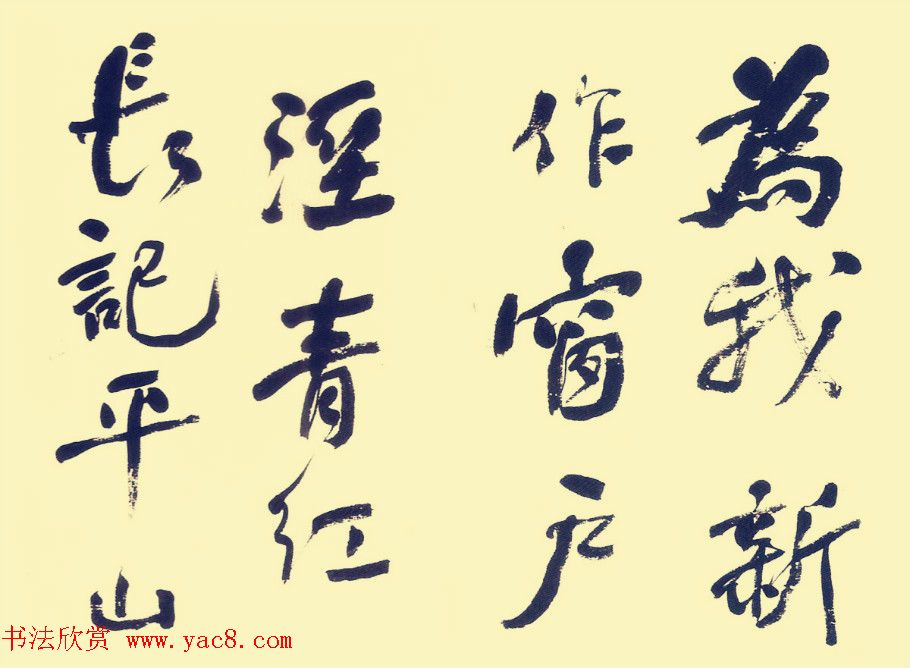 為我新
作窗户
溼青红
長記平山
书法欣赏 www.yac8.com